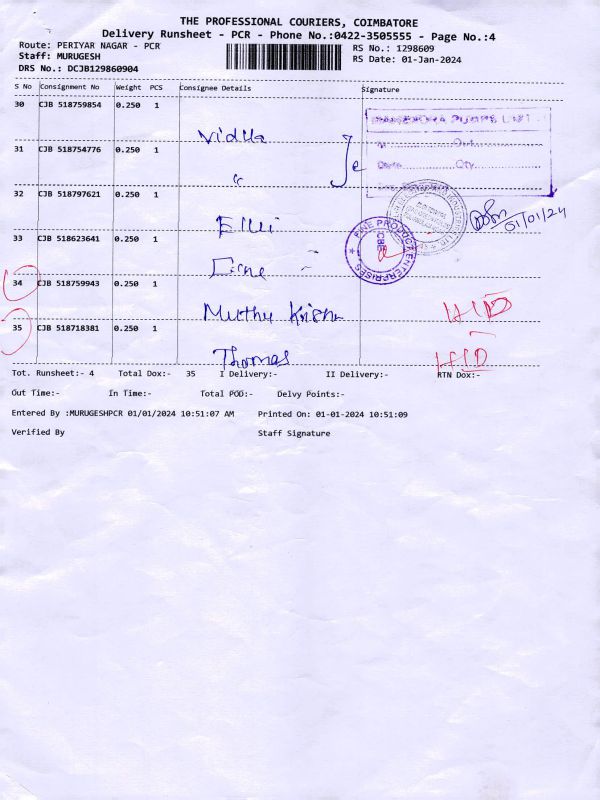 THE PROFESSIONAL COURIERS, COIMBATORE
Delivery Runsheet - PCR - Phone No.:0422-3505555 - Page No.:4
Route: PERIYAR NAGAR - PCR
RS No.: 1298609
Staff: MURUGESH
RS Date: 01-Jan-2024
DRS No.: DCJB129860904
S No Consignment No Weight PCS Consignee Details Signature
30 CJB 518759854 0.250 1
Vidhya
31 CJB 518754776 0.250 1
"
In Out
Date Qty
32 CJB 518797621 0.250 1
Elli
01/01/24
33 CJB 518623641 0.250 1
FINE PRODUCT ENTERPRISES
CBE
34 CJB 518759943 0.250 1
Muthu Krishn HID
35 CJB 518718381 0.250 1
Thomas HID
Tot. Runsheet:- 4 Total Dox:- 35 I Delivery:- II Delivery:- RTN Dox:-
Out Time:- In Time:- Total POD:- Delvy Points:-
Entered By :MURUGESHPCR 01/01/2024 10:51:07 AM Printed On: 01-01-2024 10:51:09
Verified By Staff Signature